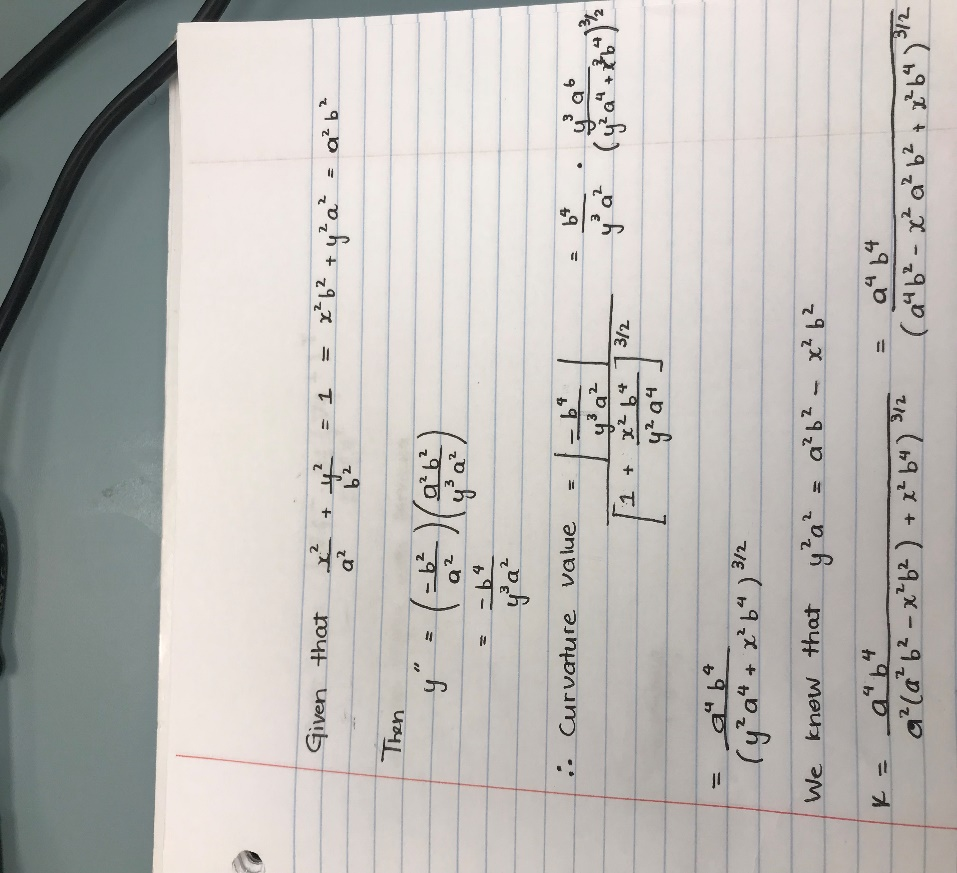 Given that x²/a² + y²/b² = 1 = x²b² + y²a² = a²b²
Then
y" = (-b²/a²)(a²b²/y³a²)
= -b⁴/y³a²
∴ Curvature value = |-b⁴/y³a²| / [1 + x²b⁴/y²a⁴]^3/2 = b⁴/y³a² · y³a⁶/(y²a⁴ + x²b⁴)^3/2
= a⁴b⁴/(y²a⁴ + x²b⁴)^3/2
We know that y²a² = a²b² - x²b²
K = a⁴b⁴/a²(a²b² - x²b²) + x²b⁴)^3/2 = a⁴b⁴/(a⁴b² - x²a²b² + x²b⁴)^3/2